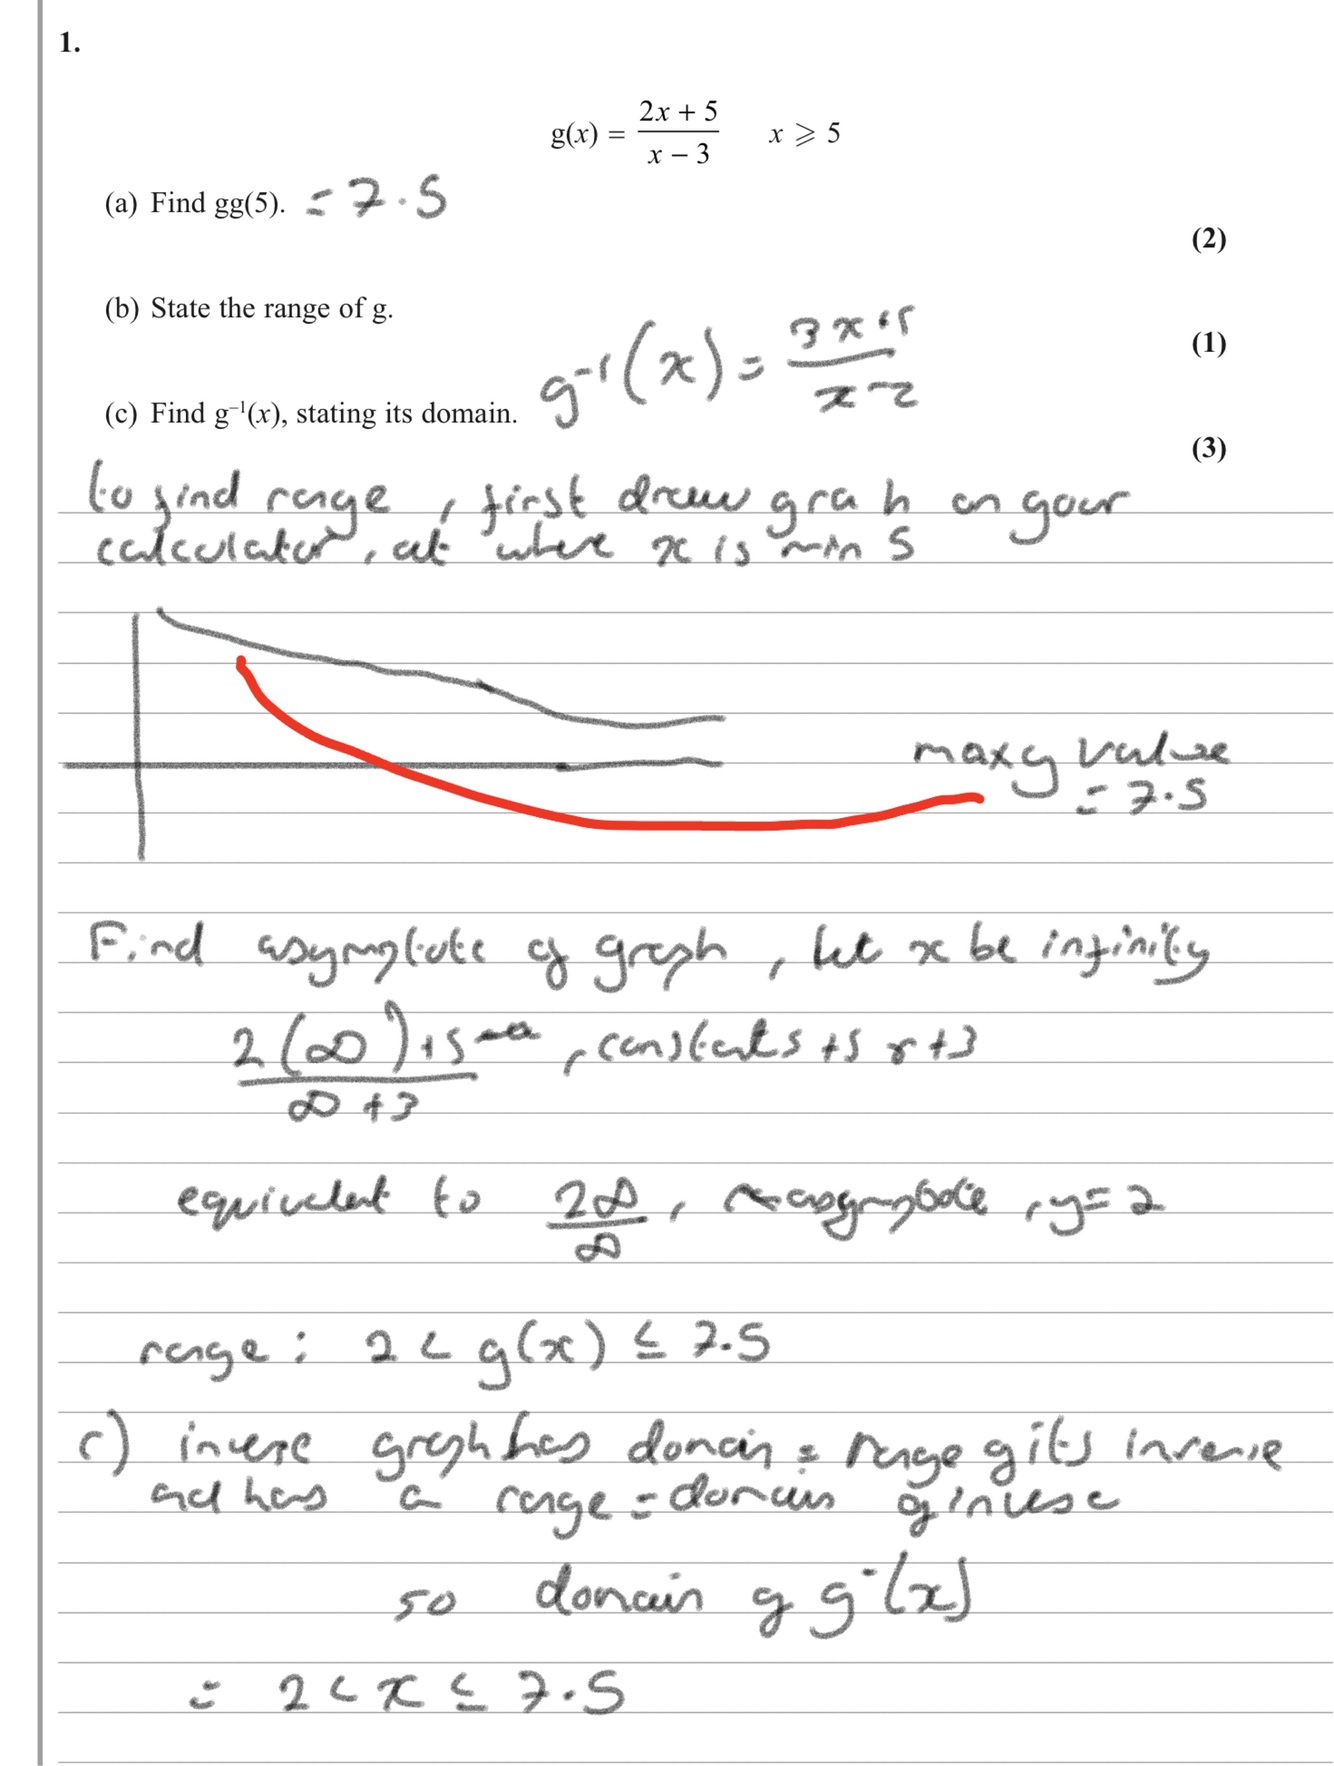 1.
g(x) = (2x + 5)/(x − 3)    x ⩾ 5
(a) Find gg(5). = 7.5
(2)
(b) State the range of g.
(1)
(c) Find g⁻¹(x), stating its domain. g⁻¹(x) = (3x+5)/(x-2)
(3)
to find range, first draw gra h on your
calculator, at where x is min 5
max y value
= 7.5
Find asymptote of graph, let x be infinity
(2(∞)+5)/(∞+3) , constants +5 & +3
equivalent to 2∞/∞ , asymptote, y=2
range: 2 < g(x) ≤ 7.5
c) inverse graph has domain = range of its inverse
and has a range = domain of inverse
so domain of g⁻(x)
= 2 < x ≤ 7.5